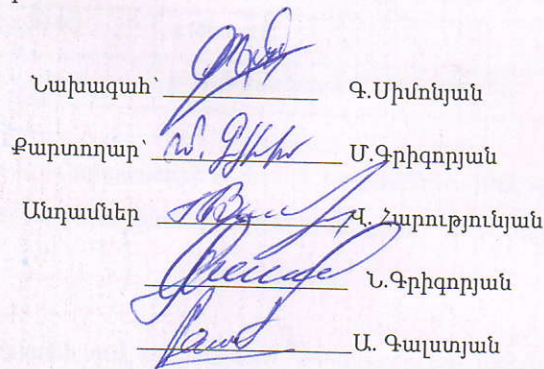 Նախագահ՝ Գ.Սիմոնյան
Քարտողար՝ Մ.Գրիգորյան
Անդամներ Վ. Հարությունյան
Ն.Գրիգորյան
Ա. Գալստյան